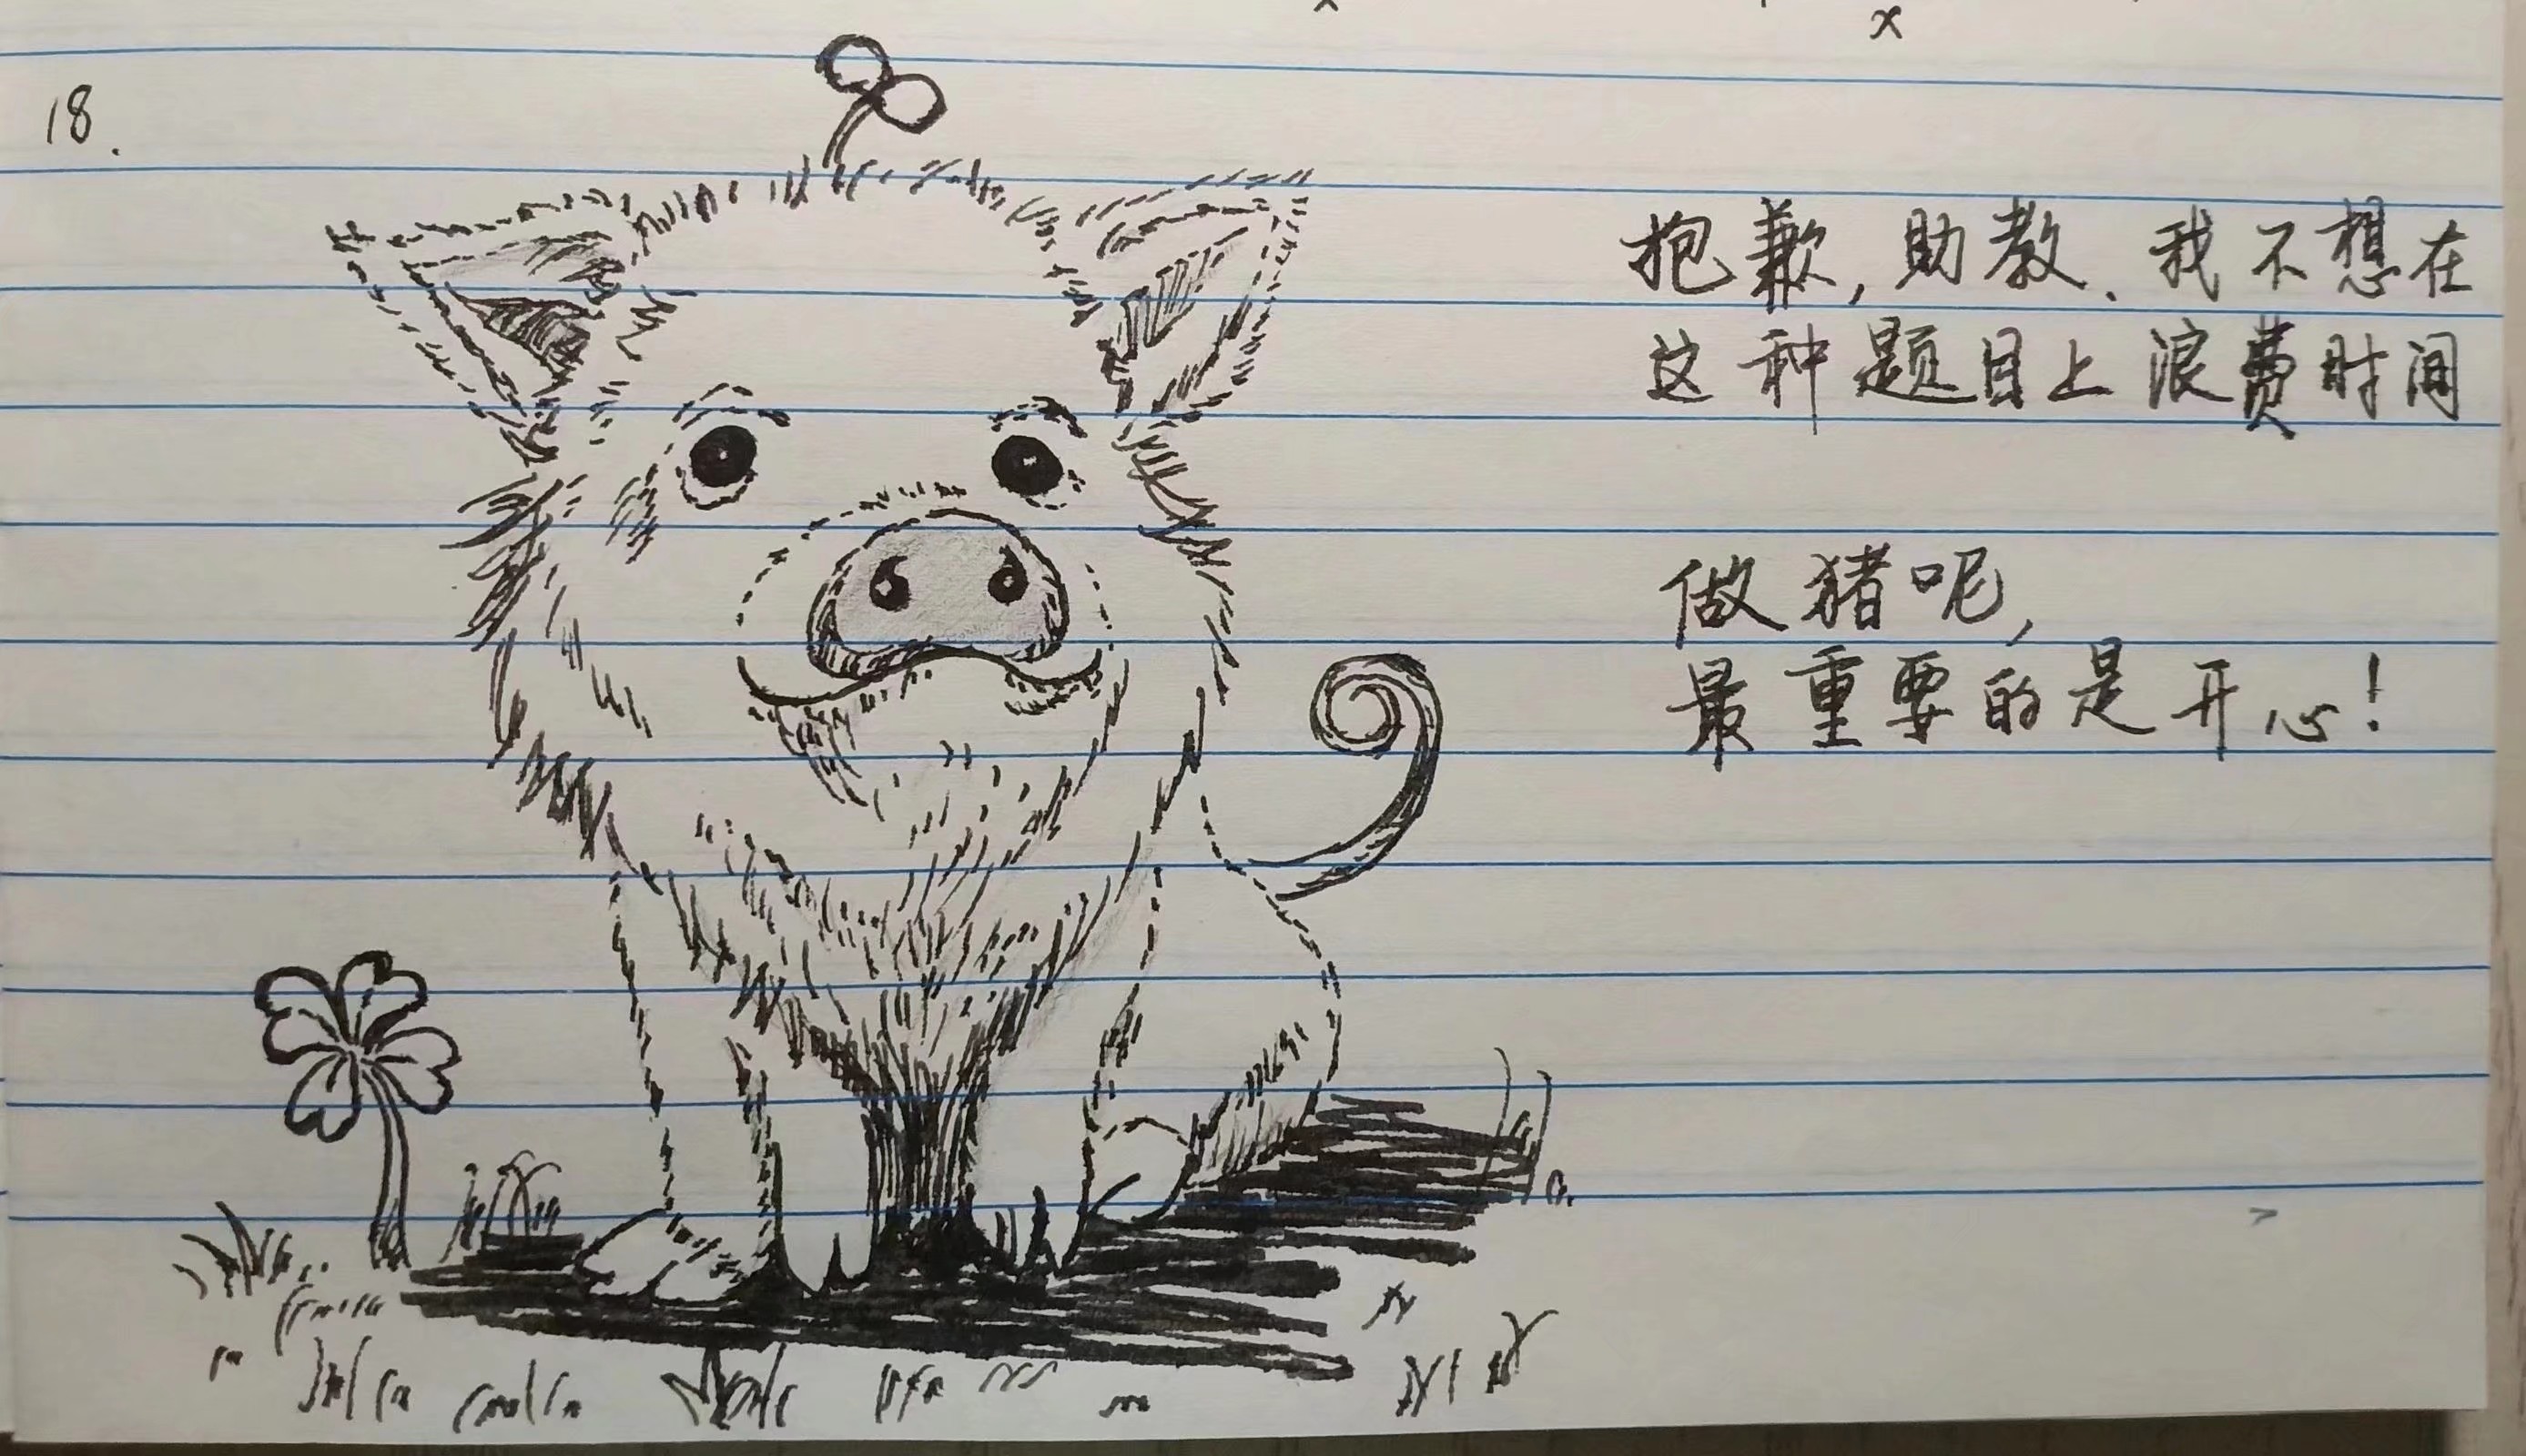 x
18.
抱歉,助教.我不想在
这种题目上浪费时间
做猪呢,
最重要的是开心!